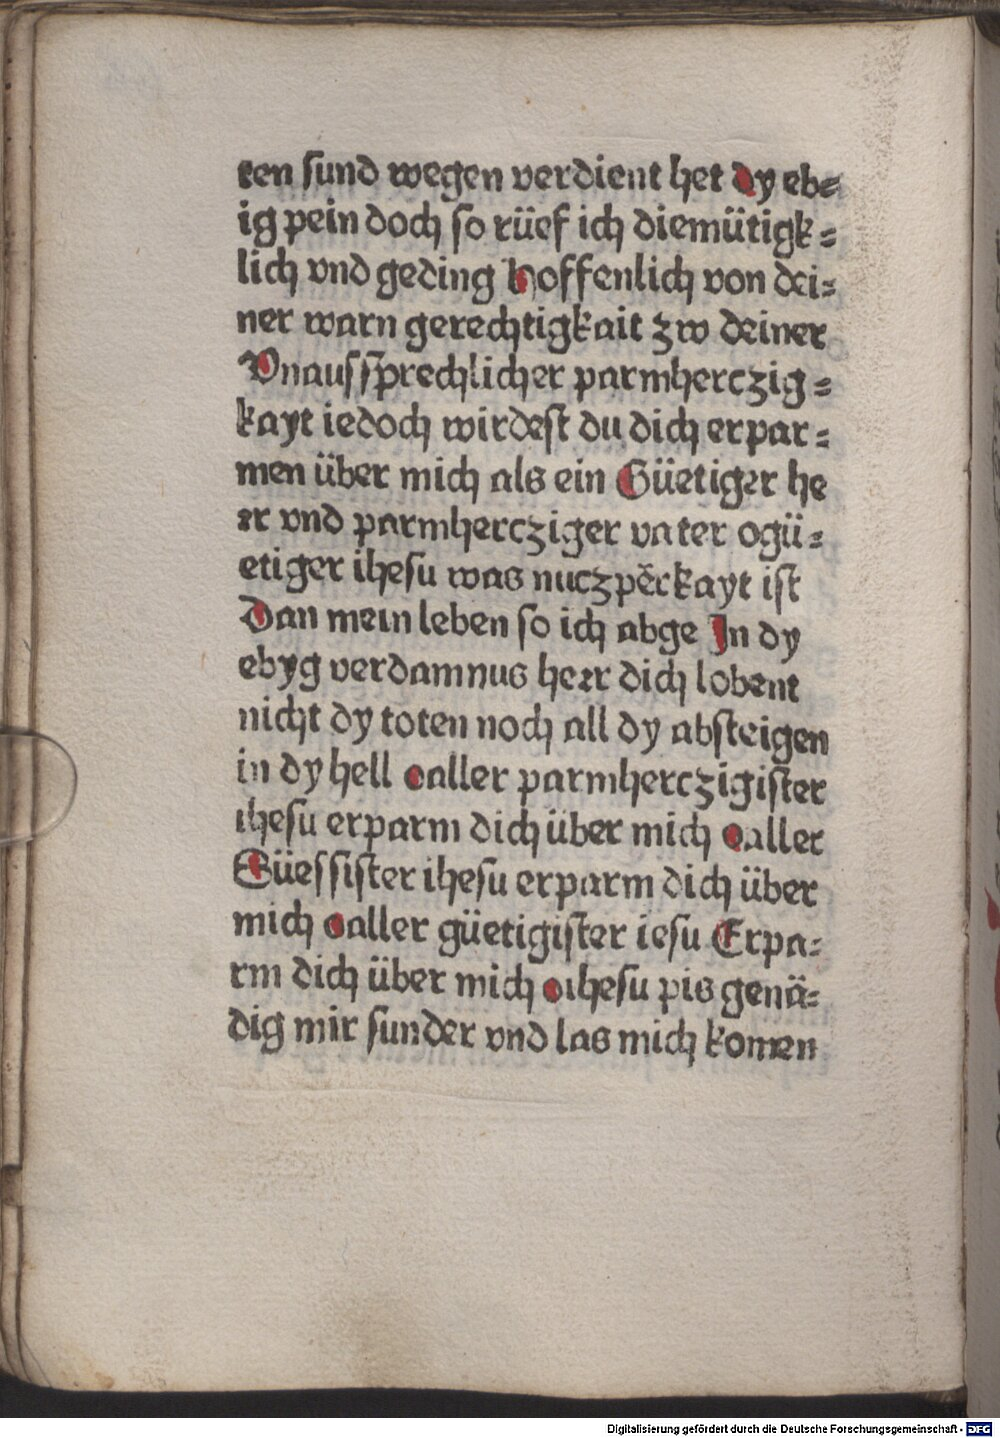 ten sund wegen verdient het dy eb⸗
ig pein doch so rüef ich diemütigk⸗
lich vnd geding hoffenlich von dei⸗
ner warn gerechtigkait zw deiner
Vnaussprechlicher parmherczig⸗
kayt iedoch wirdest du dich erpar⸗
men über mich als ein Güetiger he
rr vnd parmhercziger vater ogü⸗
etiger ihesu was nuczpěrkayt ist
Dan mein leben so ich abge In dy
ebyg verdamnus herr dich lobent
nicht dy toten noch all dy absteigen
in dy hell oaller parmherczigister
ihesu erparm dich über mich oaller
Süessister ihesu erparm dich über
mich oaller güetigister iesu Erpa⸗
rm dich über mich oihesu pis genä⸗
dig mir sunder vnd las mich komen
Digitalisierung gefördert durch die Deutsche Forschungsgemeinschaft - DFG